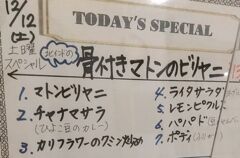 12/12(土)
土曜日
スペシャル
TODAY'S SPECIAL
北インドの
骨付きマトンのビリヤニ
1. マトンビリヤニ
2. チャナマサラ
(ひよこ豆のカレー)
3. カリフラワーのクミン炒め
4. ライタサラダ
5. レモンピクルス
6. パパド
7.